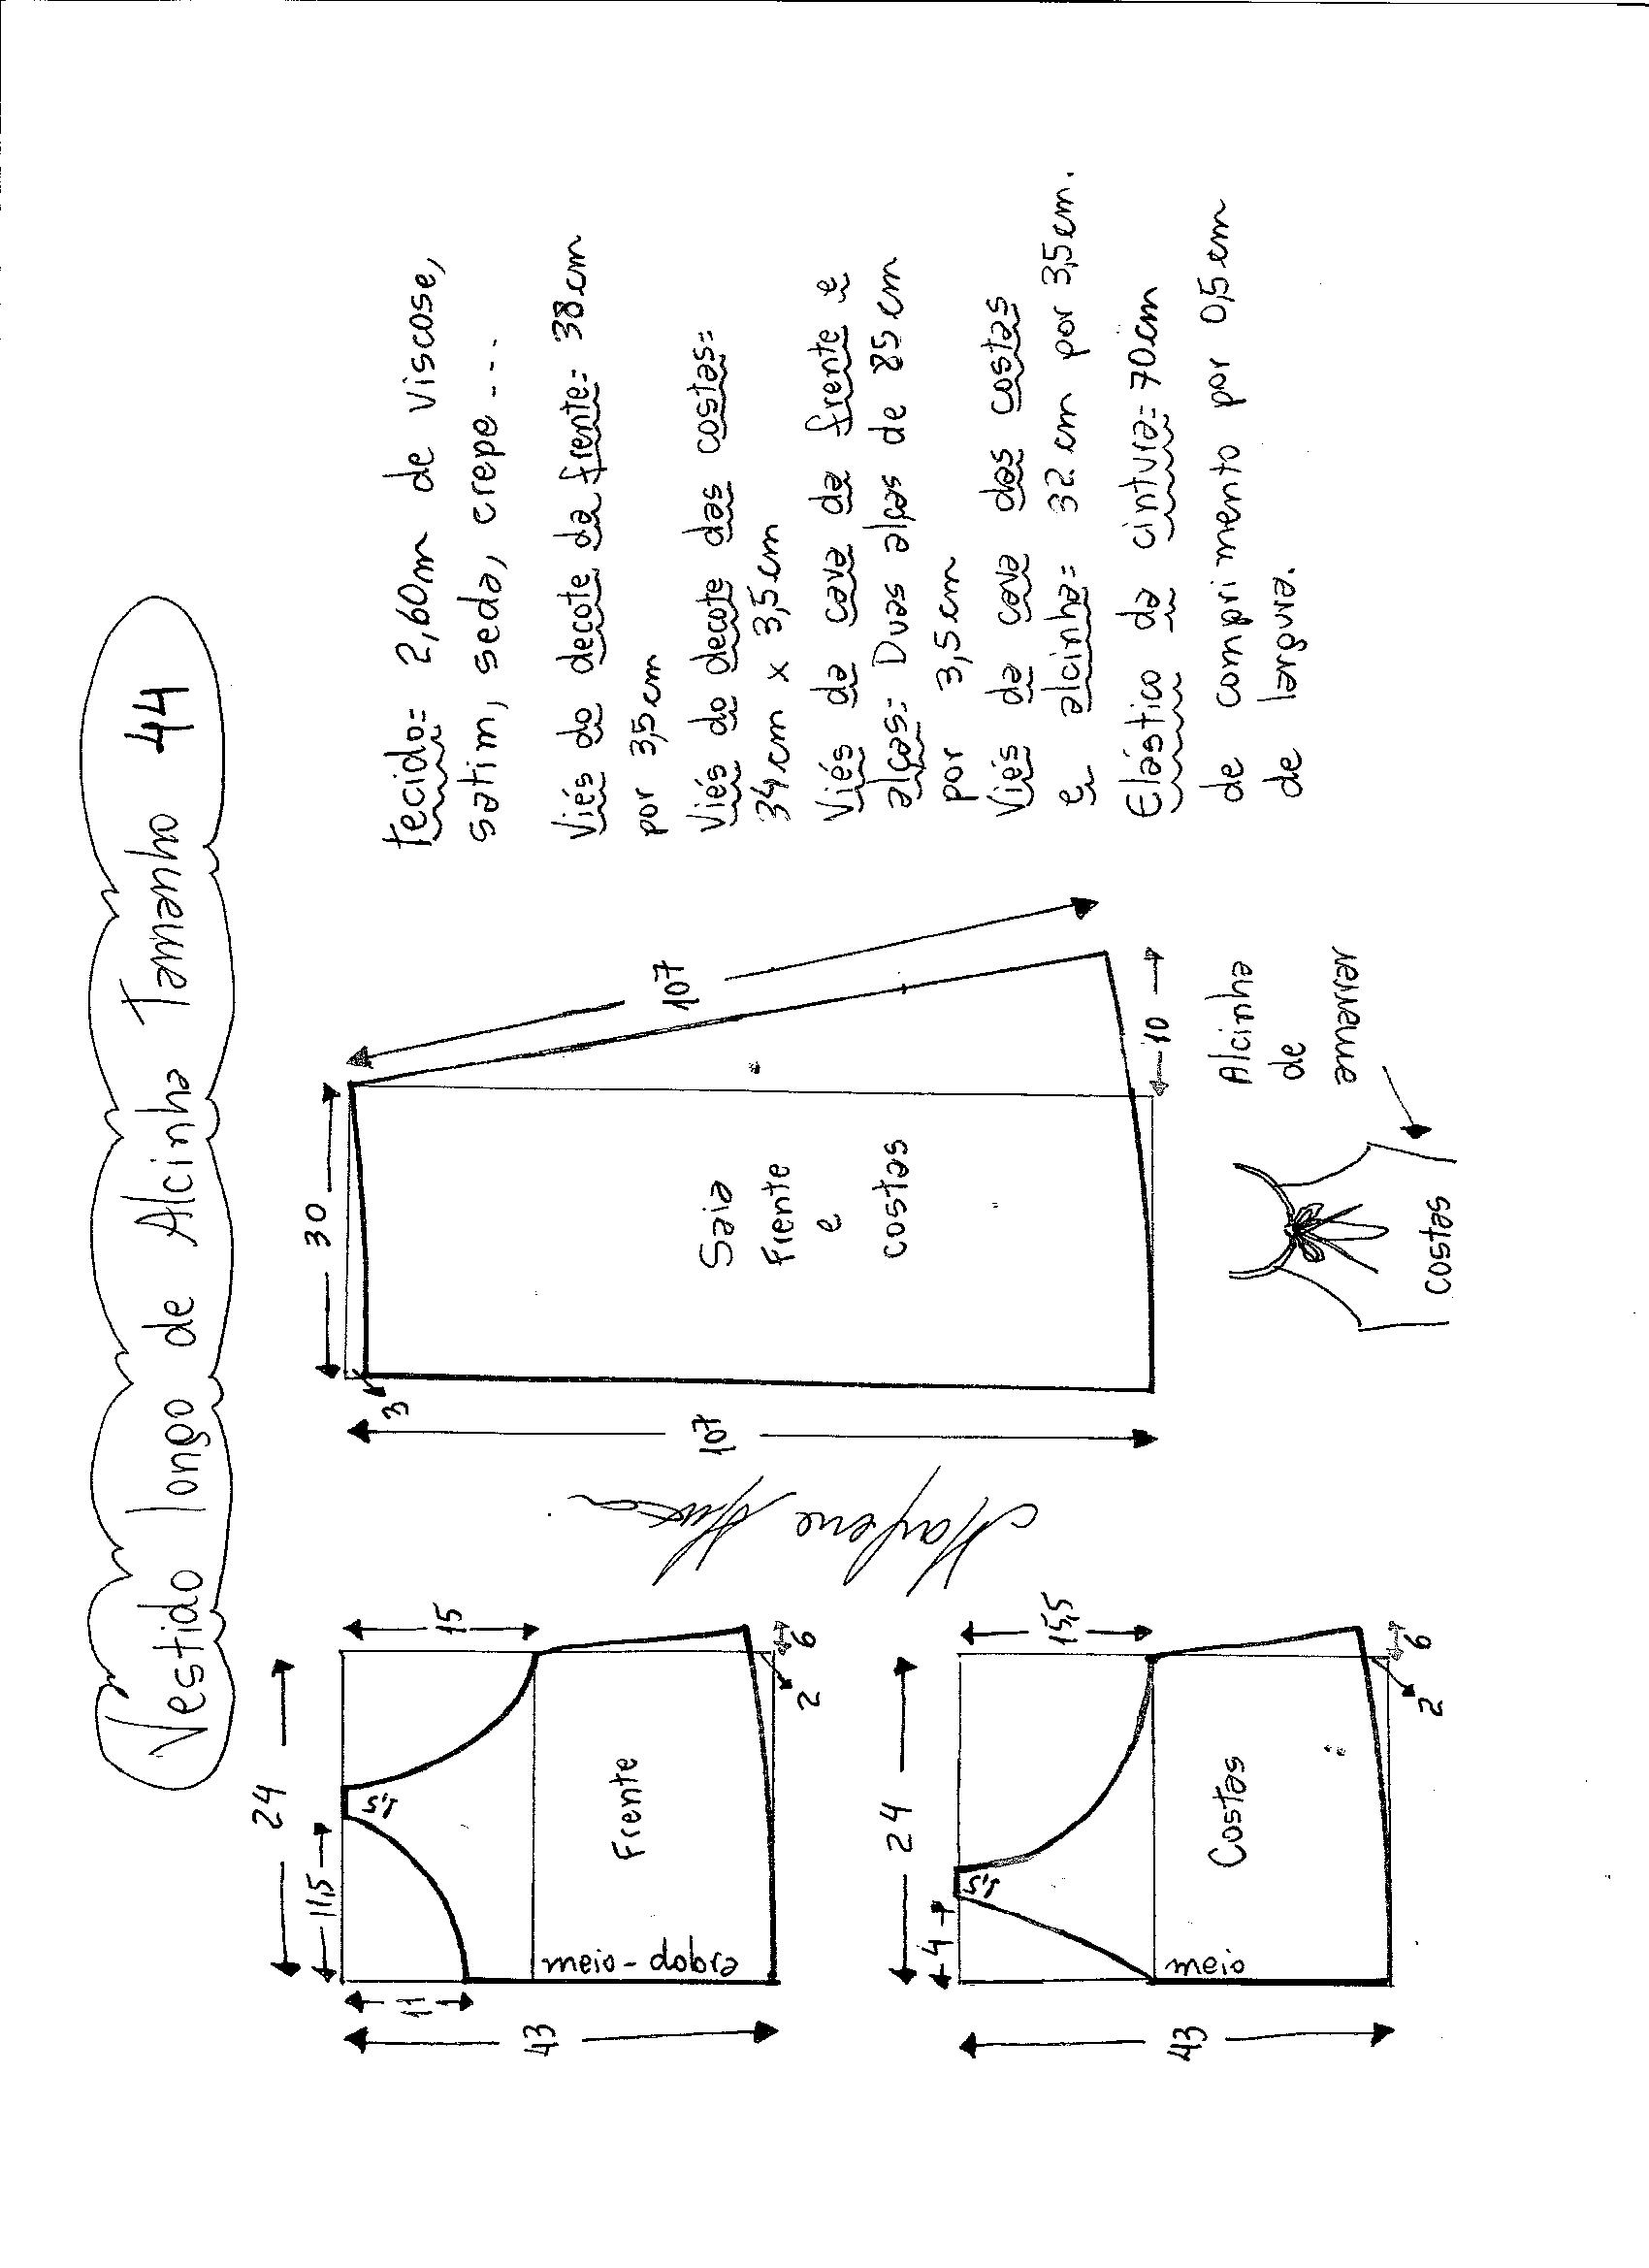 Vestido longo de Alcinha Tamanho 44
24
11,5
1,5
11
43
15
Frente
meio-dobra
6
2
24
4
1,5
43
15,5
Costas
meio
6
2
30
3
107
107
Saia
Frente
e
costas
10
Alcinha
de
amarrar
costas
tecido= 2,60m de viscose,
satim, seda, crepe...
Viés do decote da frente= 38cm
por 3,5cm
Viés do decote das costas=
34cm x 3,5cm
Viés da cava da frente e
alças= Duas alças de 85cm
por 3,5cm
Viés da cava das costas
e alcinha= 32cm por 3,5cm.
Elástico da cintura= 70cm
de comprimento por 0,5cm
de largura.